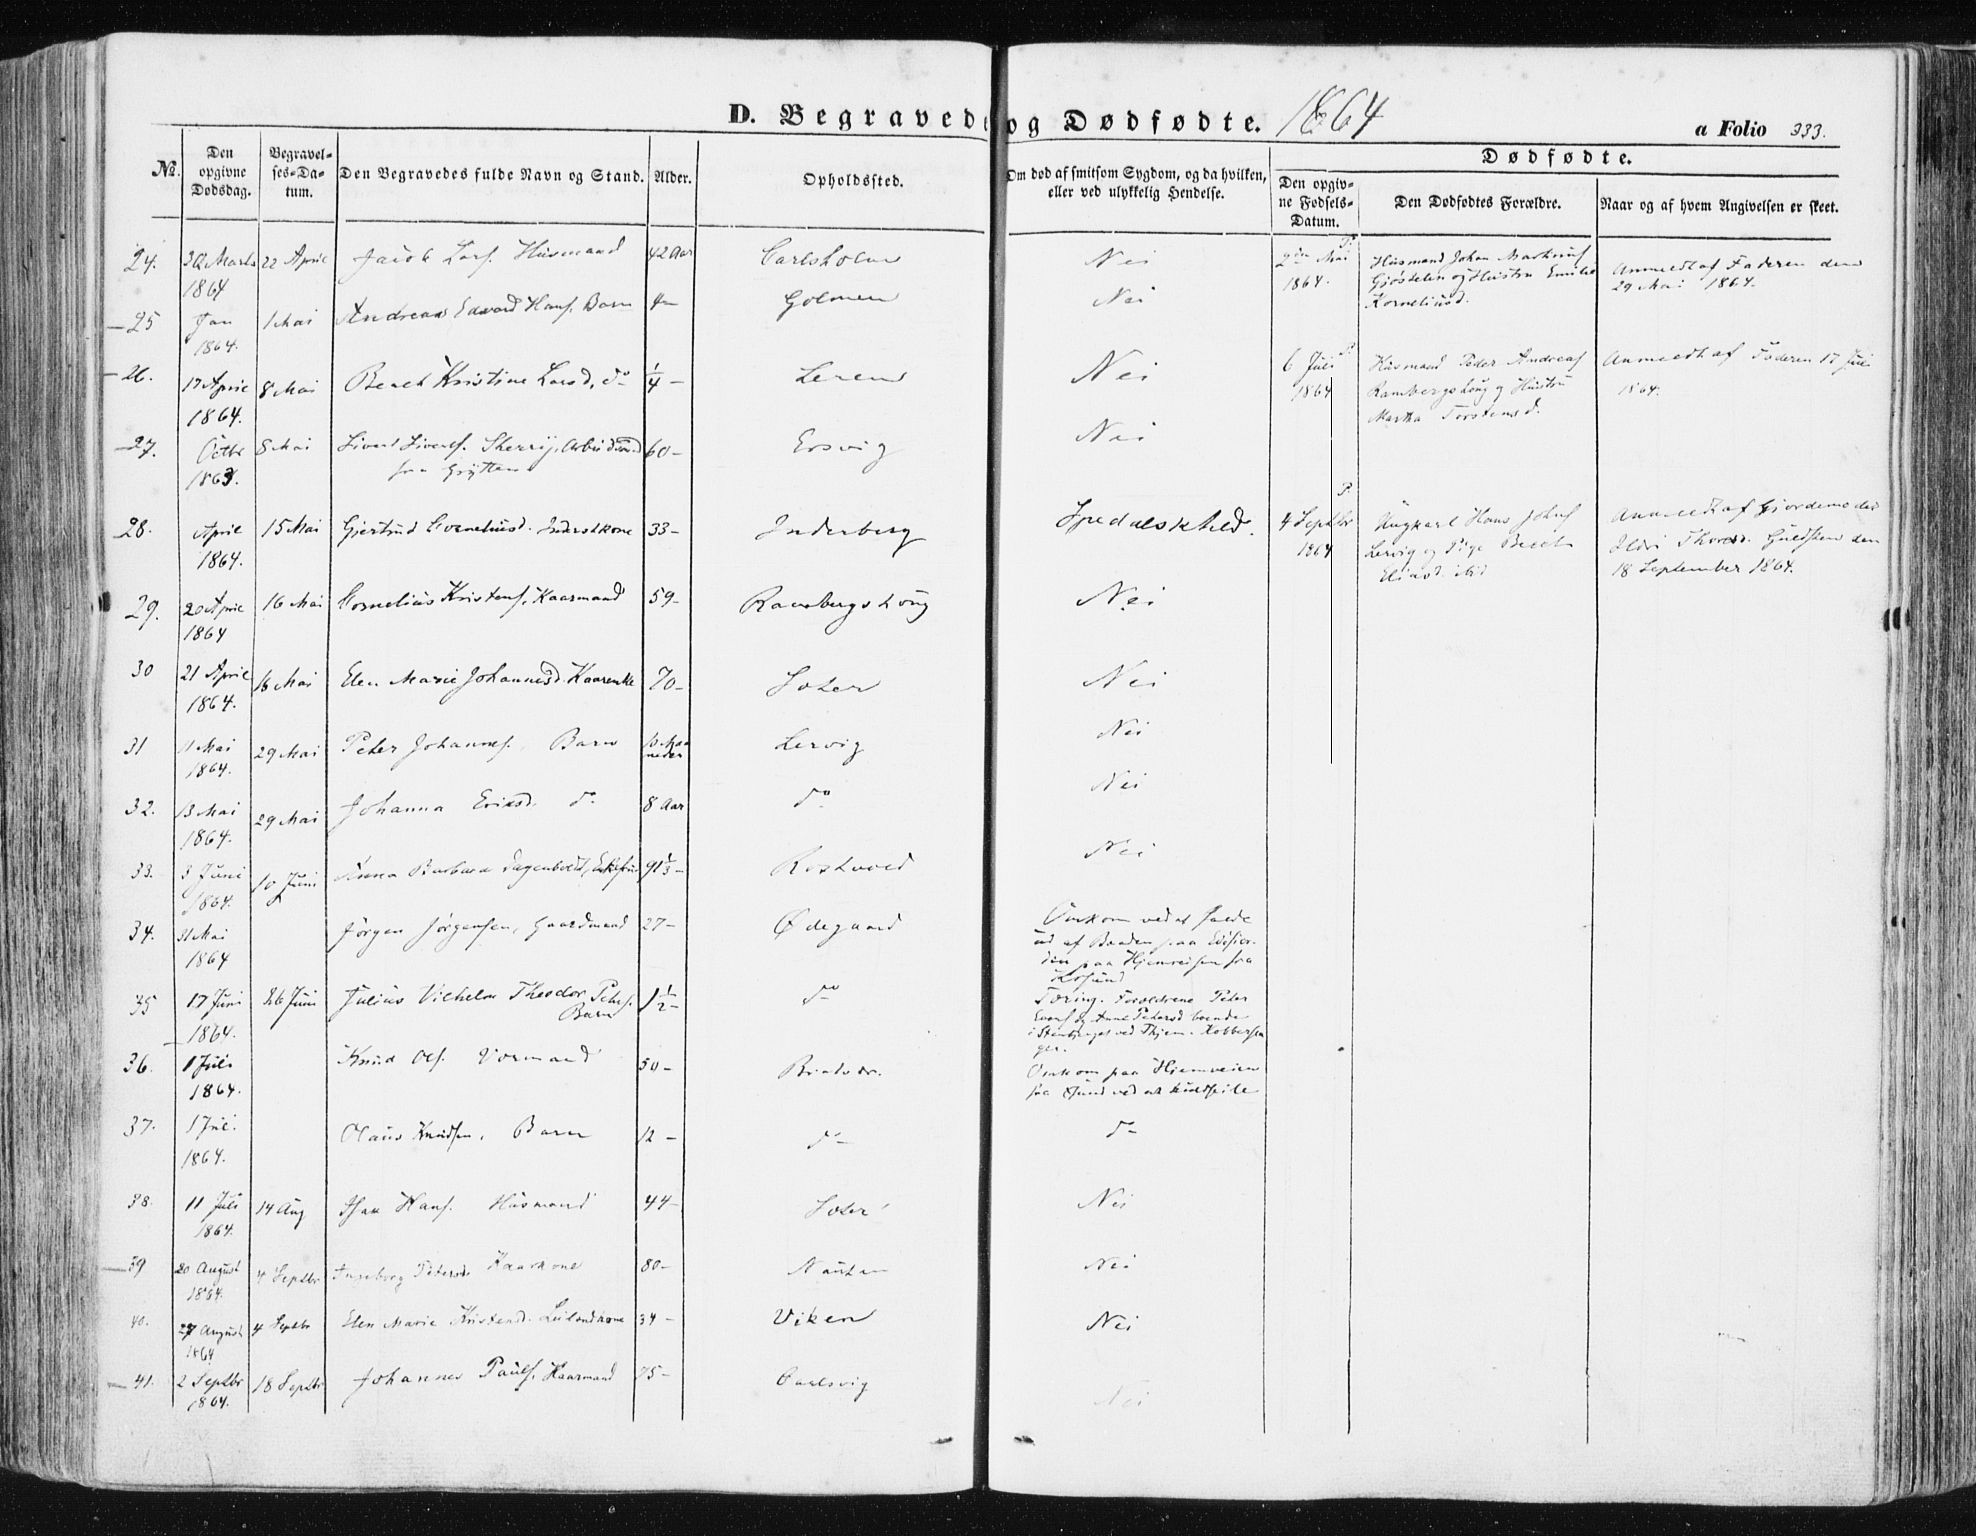 D. Begravede og Dødfødte. 1864
a Folio 333.
No. Den opgivne Dødsdag. Begravelses-Datum. Den Begravedes fulde Navn og Stand. Alder. Opholdssted. Om død af smitsom Sygdom, og da hvilken, eller ved ulykkelig Hendelse.
Dødfødte.
Den opgivne Fødsels-Datum. Den Dødfødtes Forældre. Naar og af hvem Angivelsen er skeet.
24. 30 Marts 1864 22 April Jacob Larss. Husmand 42 Aar Carlsholm Nei
25 Jan 1864. 1 Mai Andreas Edvard Hanss. Barn 4 - Golmen Nei
26. 17 April 1864. 8 Mai Bereth Kristine Larsd. do 1/4 - Lerem Nei
27. Octbr 1863. 8 Mai Sivert Sivertss. Arbeidsmand fra Grytten 60 - Ersvig Nei
28. April 1864. 15 Mai Gjertrud Corneliusd. Inderstkone 33 - Inderberg Spedalskhed.
29. 20 April 1864 16 Mai Cornelius Kristens. Kaarmand 59 - Rambergshoug Nei
30 21 April 1864. 16 Mai Elen Marie Johannesd. Kaarenke 70 - Soter Nei
31 11 Mai 1864. 29 Mai Peter Johanness. Barn 10 Maaneder Lervig Nei
32. 13 Mai 1864. 29 Mai Johanna Eriksd. do 8 Aar do Nei
33. 3 Juni 1864. 10 Juni Anna Barbara 91 1/3 - Rostvold Nei
34. 31 Mai 1864 Jørgen Jørgensen, Gaardmand 27 - Ødegaard Omkom ved at falde
ud af Baaden paa Edisfior-
den paa Hjemreisen fra
35 17 Juni 1864. 26 Juni Julius Vilhelm Theodor Peters. Barn 1 1/2 - do Tæring. Forældrene Peter
og Anne Petersd boende
ved
36. 1 Juli 1864. Knud Ols. 50 - Omkom paa Hjemveien
fra Sund ved at kuldseile
37. 1 Juli 1864. Olaus Knudsen, Barn 12 - do do
38. 11 Juli 1864. 14 Aug Isak Hanss. Husmand 44 - Soter Nei
39 20 August 1864. 4 Septbr Ingeborg Petersd. Kaarkone 80 - Nei
40. 27 August 1864 4 Septbr Elen Marie Kristensd. Leilendkone 34 - Viken Nei
41. 2 Septbr 1864. 18 Septbr Johannes Pauls. Kaarmand 75 - Carlsvig Nei
2den Mai 1864. P. Husmand Johan Martinus
Gjøstølen og Hustru Emilie
Korneliusd.
Anmeldt af Faderen den
29 Mai 1864.
6 Juli 1864 P. Husmand Peder Andreas
Rambergshoug og Hustru
Martha Torstensd.
Anmeldt af Faderen 17 Juli
1864.
4 Septbr 1864 P. Ungkarl Hans Johns
Lervig og Pige Bereth
Eliasd. ibid
Anmeldt af Gjordemoder
Ildri Thoresd. den
18 September 1864.